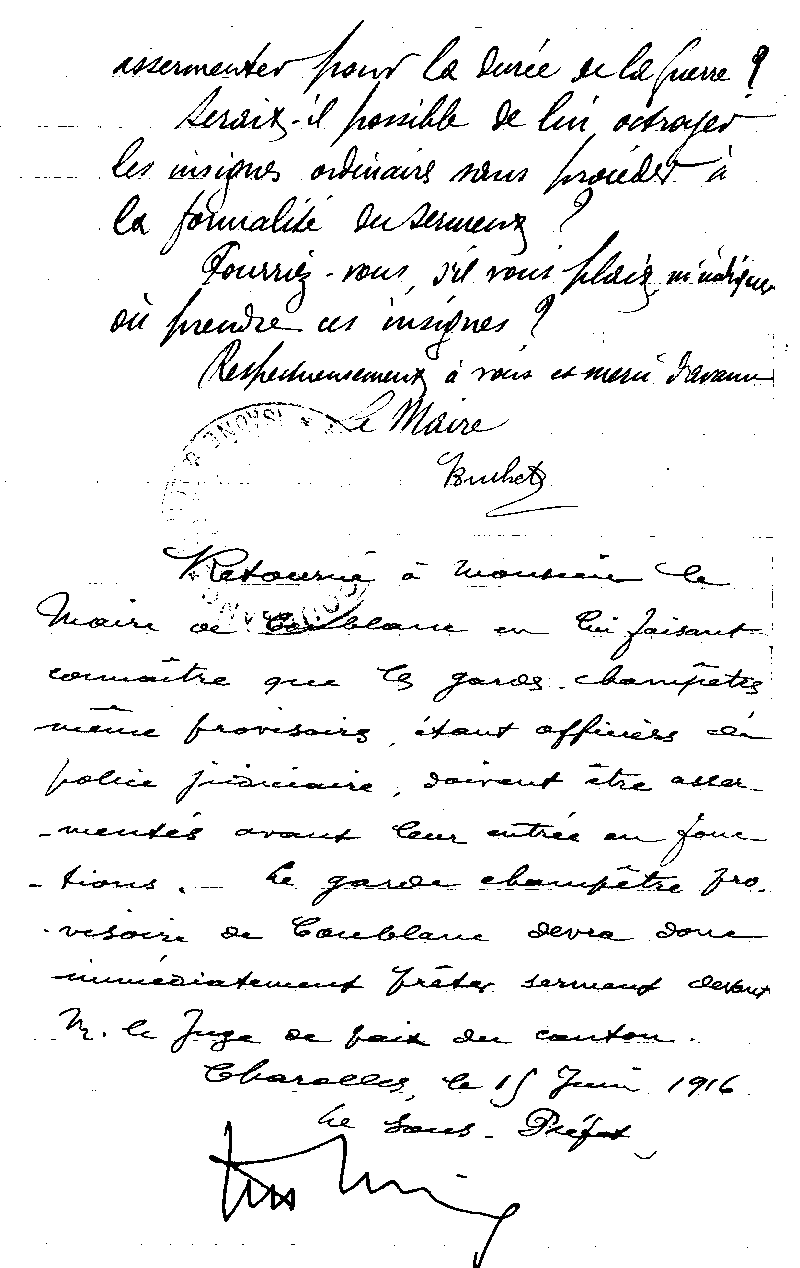 assermenter pour la durée de la guerre ?
Serait-il possible de lui octroyer
les insignes ordinaire sans procéder à
la formalité du serment ?
Pourriez-vous, s'il vous plait, m'indiquer
où prendre ces insignes ?
Respectueusement à vous et merci d'avance
Le Maire
Buchet
Retourné à Monsieur le
Maire de Coublanc en lui faisant
connaître que les gardes-champêtres
même provisoires, étant officiers de
police judiciaire, doivent être asser-
-mentés avant leur entrée en fonc-
-tions. — Le garde champêtre pro-
-visoire de Coublanc devra donc
immédiatement prêter serment devant
M. le Juge de paix du canton.
Charolles, le 15 Juin 1916
Le Sous-Préfet